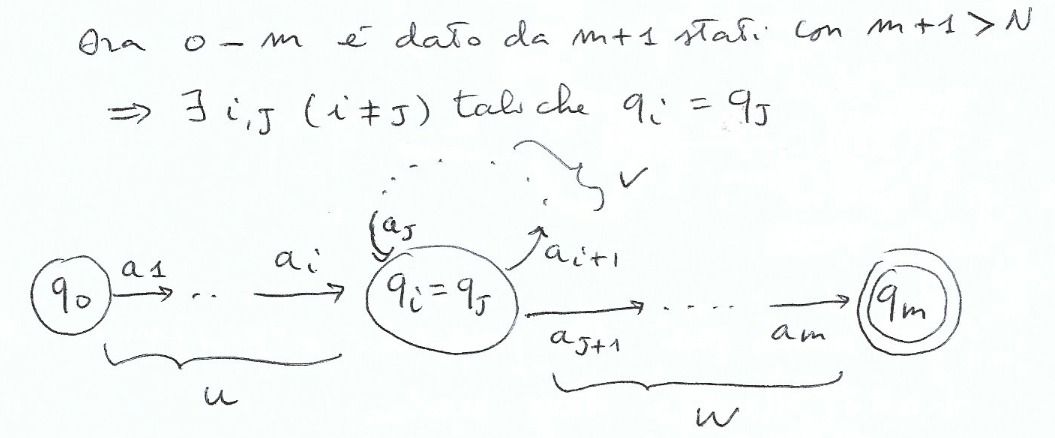 Ora 0 - m é dato da m+1 stati con m+1 > N
⇒ ∃ i,J (i ≠ J) tali che qi = qJ
v
aJ
ai+1
q0 a1 .. ai qi = qJ aJ+1 .... am qm
u w